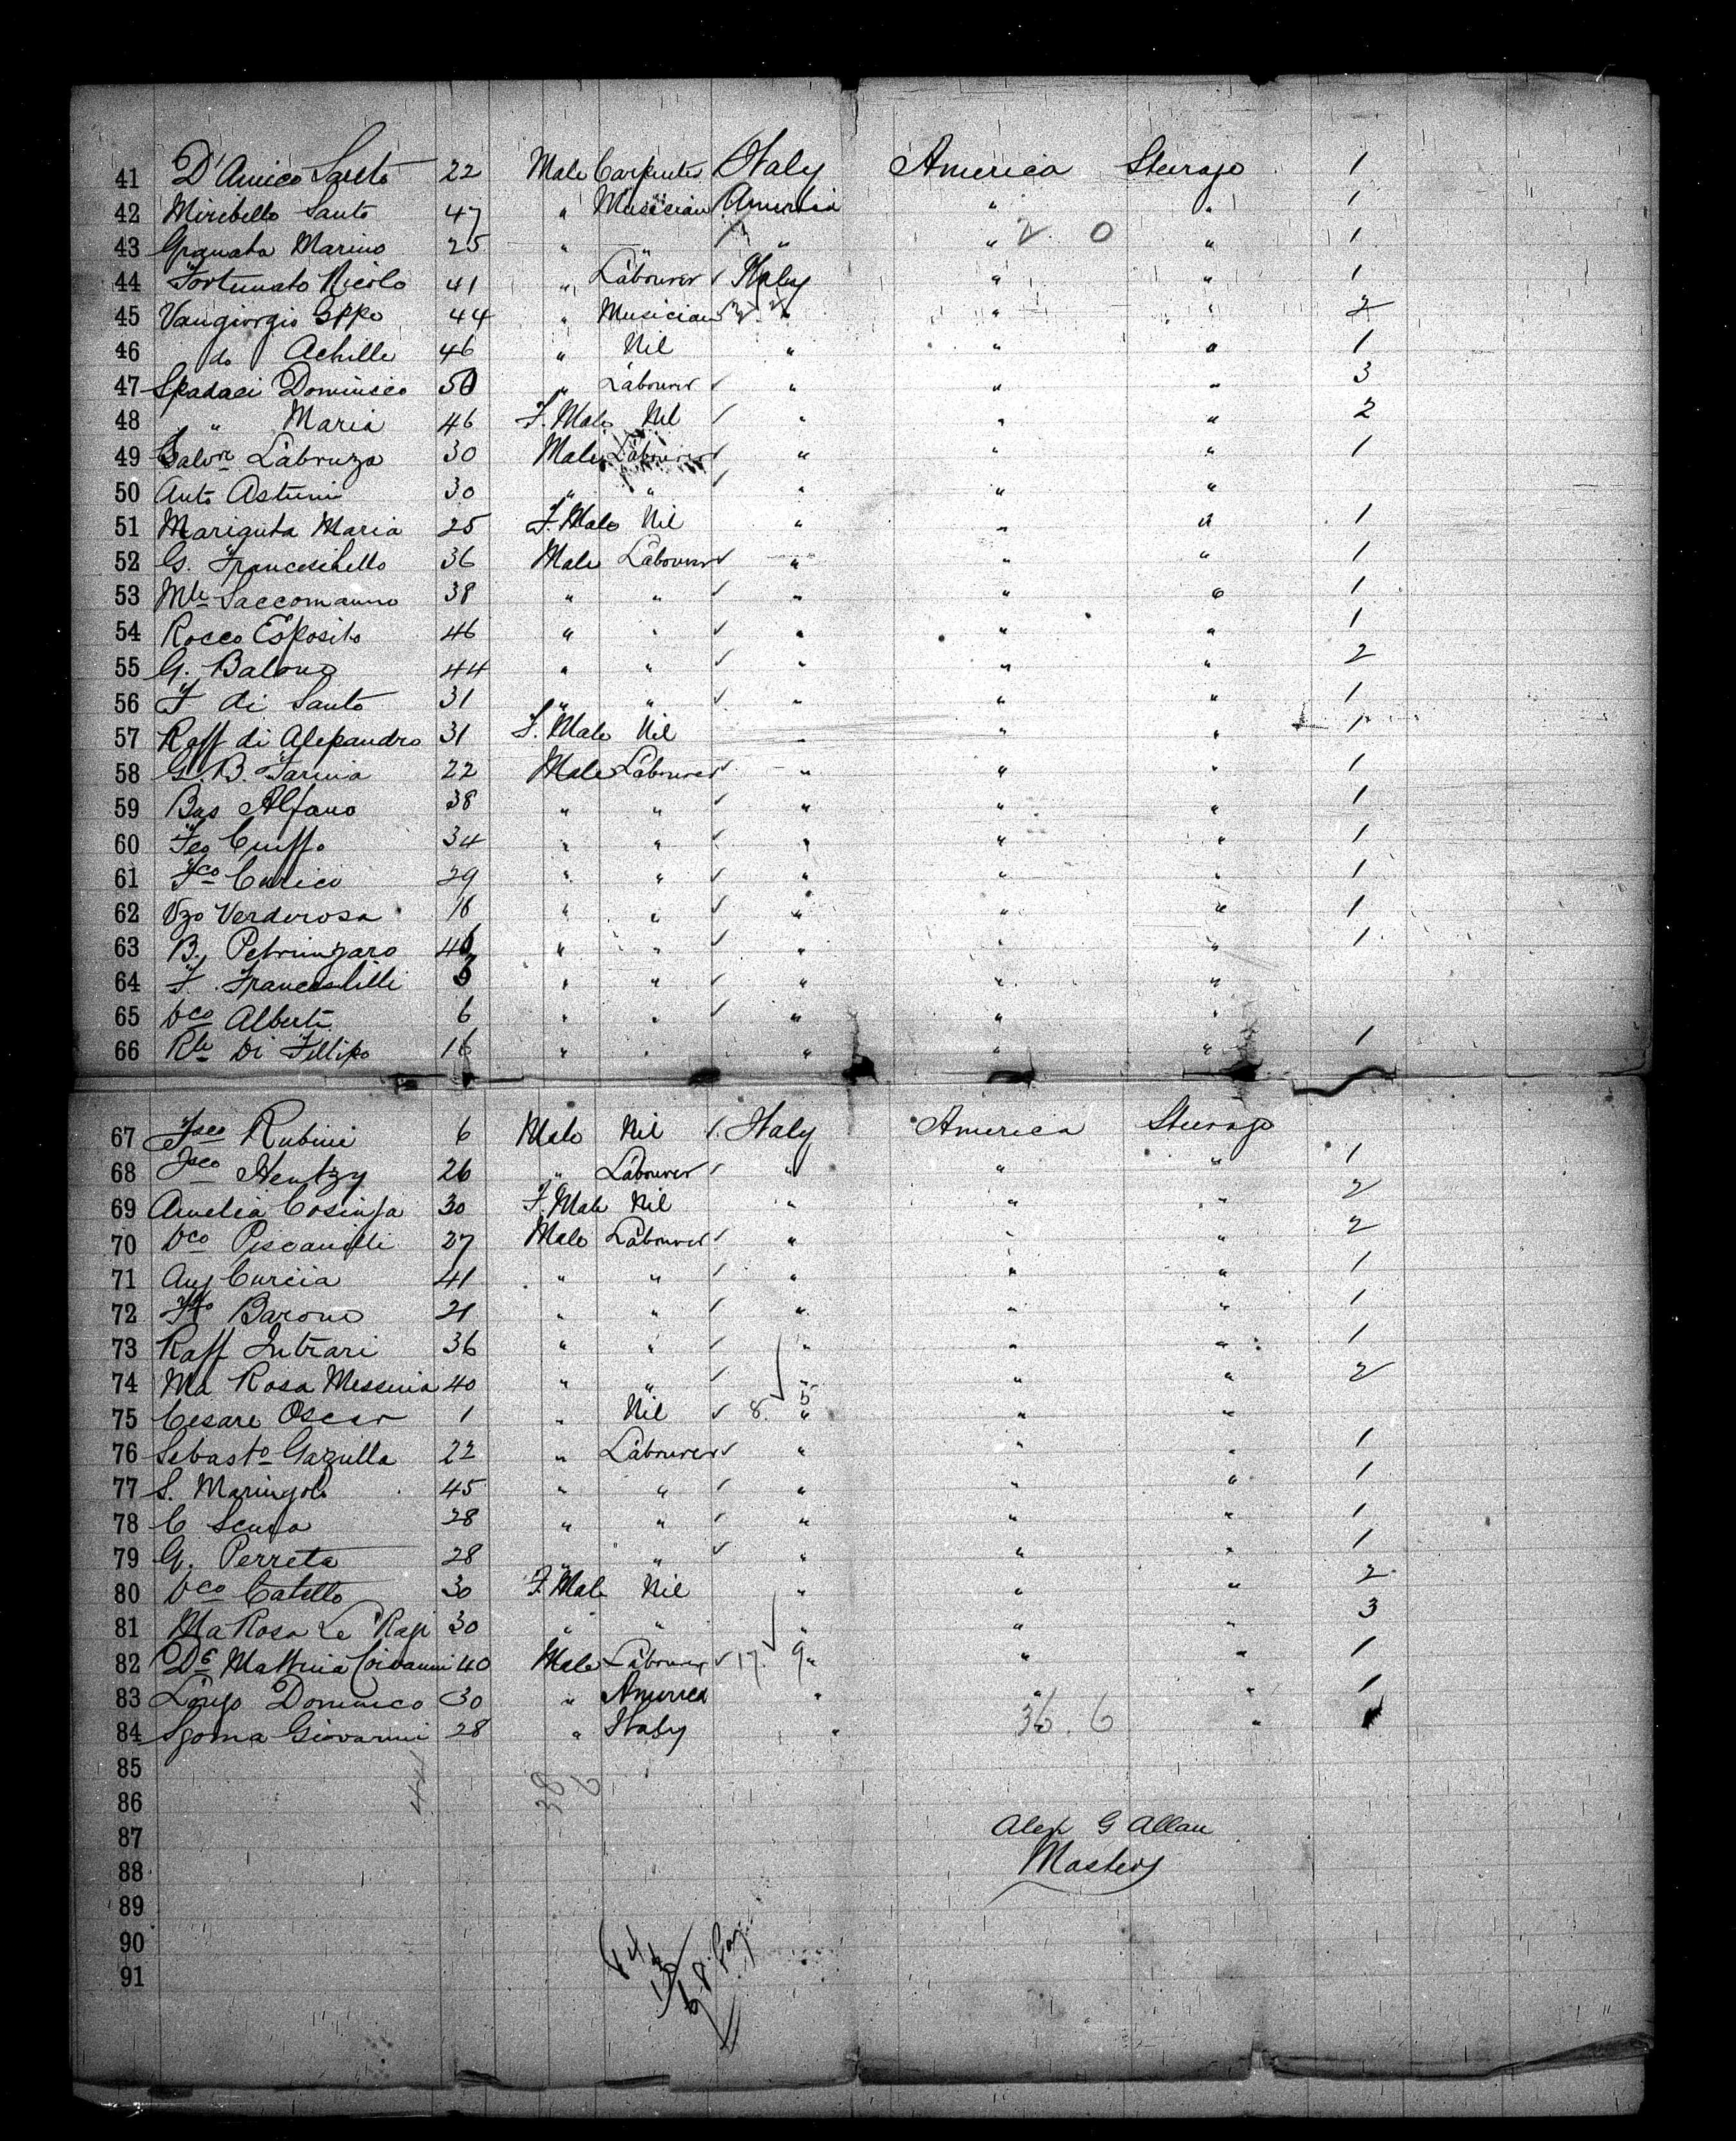 41 D'Amico Santo 22 Male Carpenter Italy America Steerage 1
42 Miribello Santo 47 " Musician America " " 1
43 Granata Marino 25 " " " " " 1
2 0
44 Fortunato Nicolo 41 " Labourer ✓ Italy " " 1
45 Vangiorgio Gppe 44 " Musician " " " 2
46 do Achille 46 " Nil " " " 1
47 Spadaci Dominico 50 " Labourer ✓ " " " 3
48 " Maria 46 F. Male Nil ✓ " " " 2
49 Salvre Labruzo 30 Male Labourer ✓ " " " 1
50 Anto Astuni 30 " " ✓ " " "
51 Mariguta Maria 25 F. Male Nil " " " 1
52 G. Franceschello 36 Male Labourer ✓ " " " 1
53 Mle Saccomanno 38 " " ✓ " " " 1
54 Rocco Esposito 46 " " ✓ " " " 1
55 G. Balono 44 " " ✓ " " " 2
56 F di Santo 31 " " ✓ " " " 1
57 Raff di Alexandro 31 F. Male Nil " " " 1
58 G. B. Farina 22 Male Labourer ✓ " " " 1
59 Bas Alfano 38 " " ✓ " " " 1
60 Fco Ciuffo 34 " " ✓ " " " 1
61 Fco Curico 29 " " ✓ " " " 1
62 Vzo Verderosa 16 " " ✓ " " " 1
63 B. Petringaro " " ✓ " " " 1
64 F. Franceschilli " " ✓ " " "
65 Vco Alberti 6 " " ✓ " " "
66 Rle Di Fillipo 16 " " " " " 1
67 Fsco Rubini 6 Male Nil ✓ Italy America Steerage
68 Fsco Hentzy 26 " Labourer ✓ " " " 1
69 Amelia Cosinfa 30 F. Male Nil " " " 2
70 Vco Piscanilli 27 Male Labourer ✓ " " " 2
71 Ang Curcia 41 " " ✓ " " " 1
72 Barone 21 " " ✓ " " " 1
73 Raff Intrari 36 " " ✓ " " " 1
74 Ma Rosa Messina 40 " " ✓ " " " 2
75 Cesare Oscar 1 " Nil ✓ 8. 5 " " "
76 Sebasto Gazulla 22 " Labourer ✓ " " " 1
77 S. Maringolo 45 " " ✓ " " " 1
78 C Scura 28 " " ✓ " " " 1
79 G. Perreta 28 " " ✓ " " " 1
80 Vco Catello 30 F. Male Nil " " " 2
81 Ma Rosa Le Rapi 30 " " " " " 3
82 De Mattria Giovanni 40 Male Labourer ✓ 17. 9 " " " 1
83 Longo Dominico 30 " America " " " 1
84 Sgoma Giovanni 28 " Italy " "
36. 6
85
86
38
6
87
Alex G Allan
88
Master
89
90
91